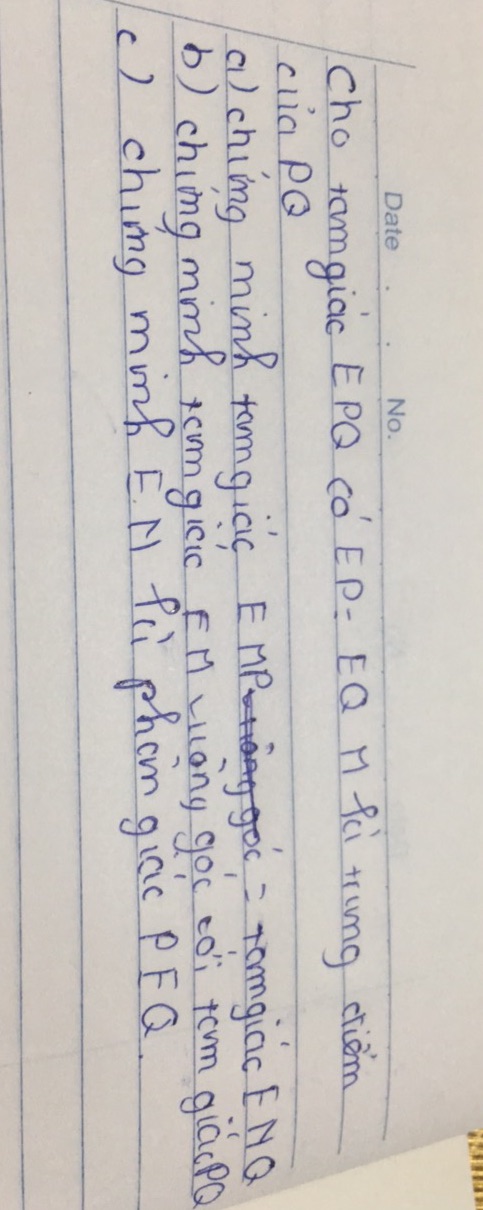 Date . . No.
Cho tamgiác EPQ có EP = EQ M là trung điểm
của PQ
a) chứng minh tamgiác EMP vuông góc = tamgiác ENQ
b) chứng minh tamgiác EM vuông góc với tam giác PQ
c) chứng minh EM là phân giác PEQ.